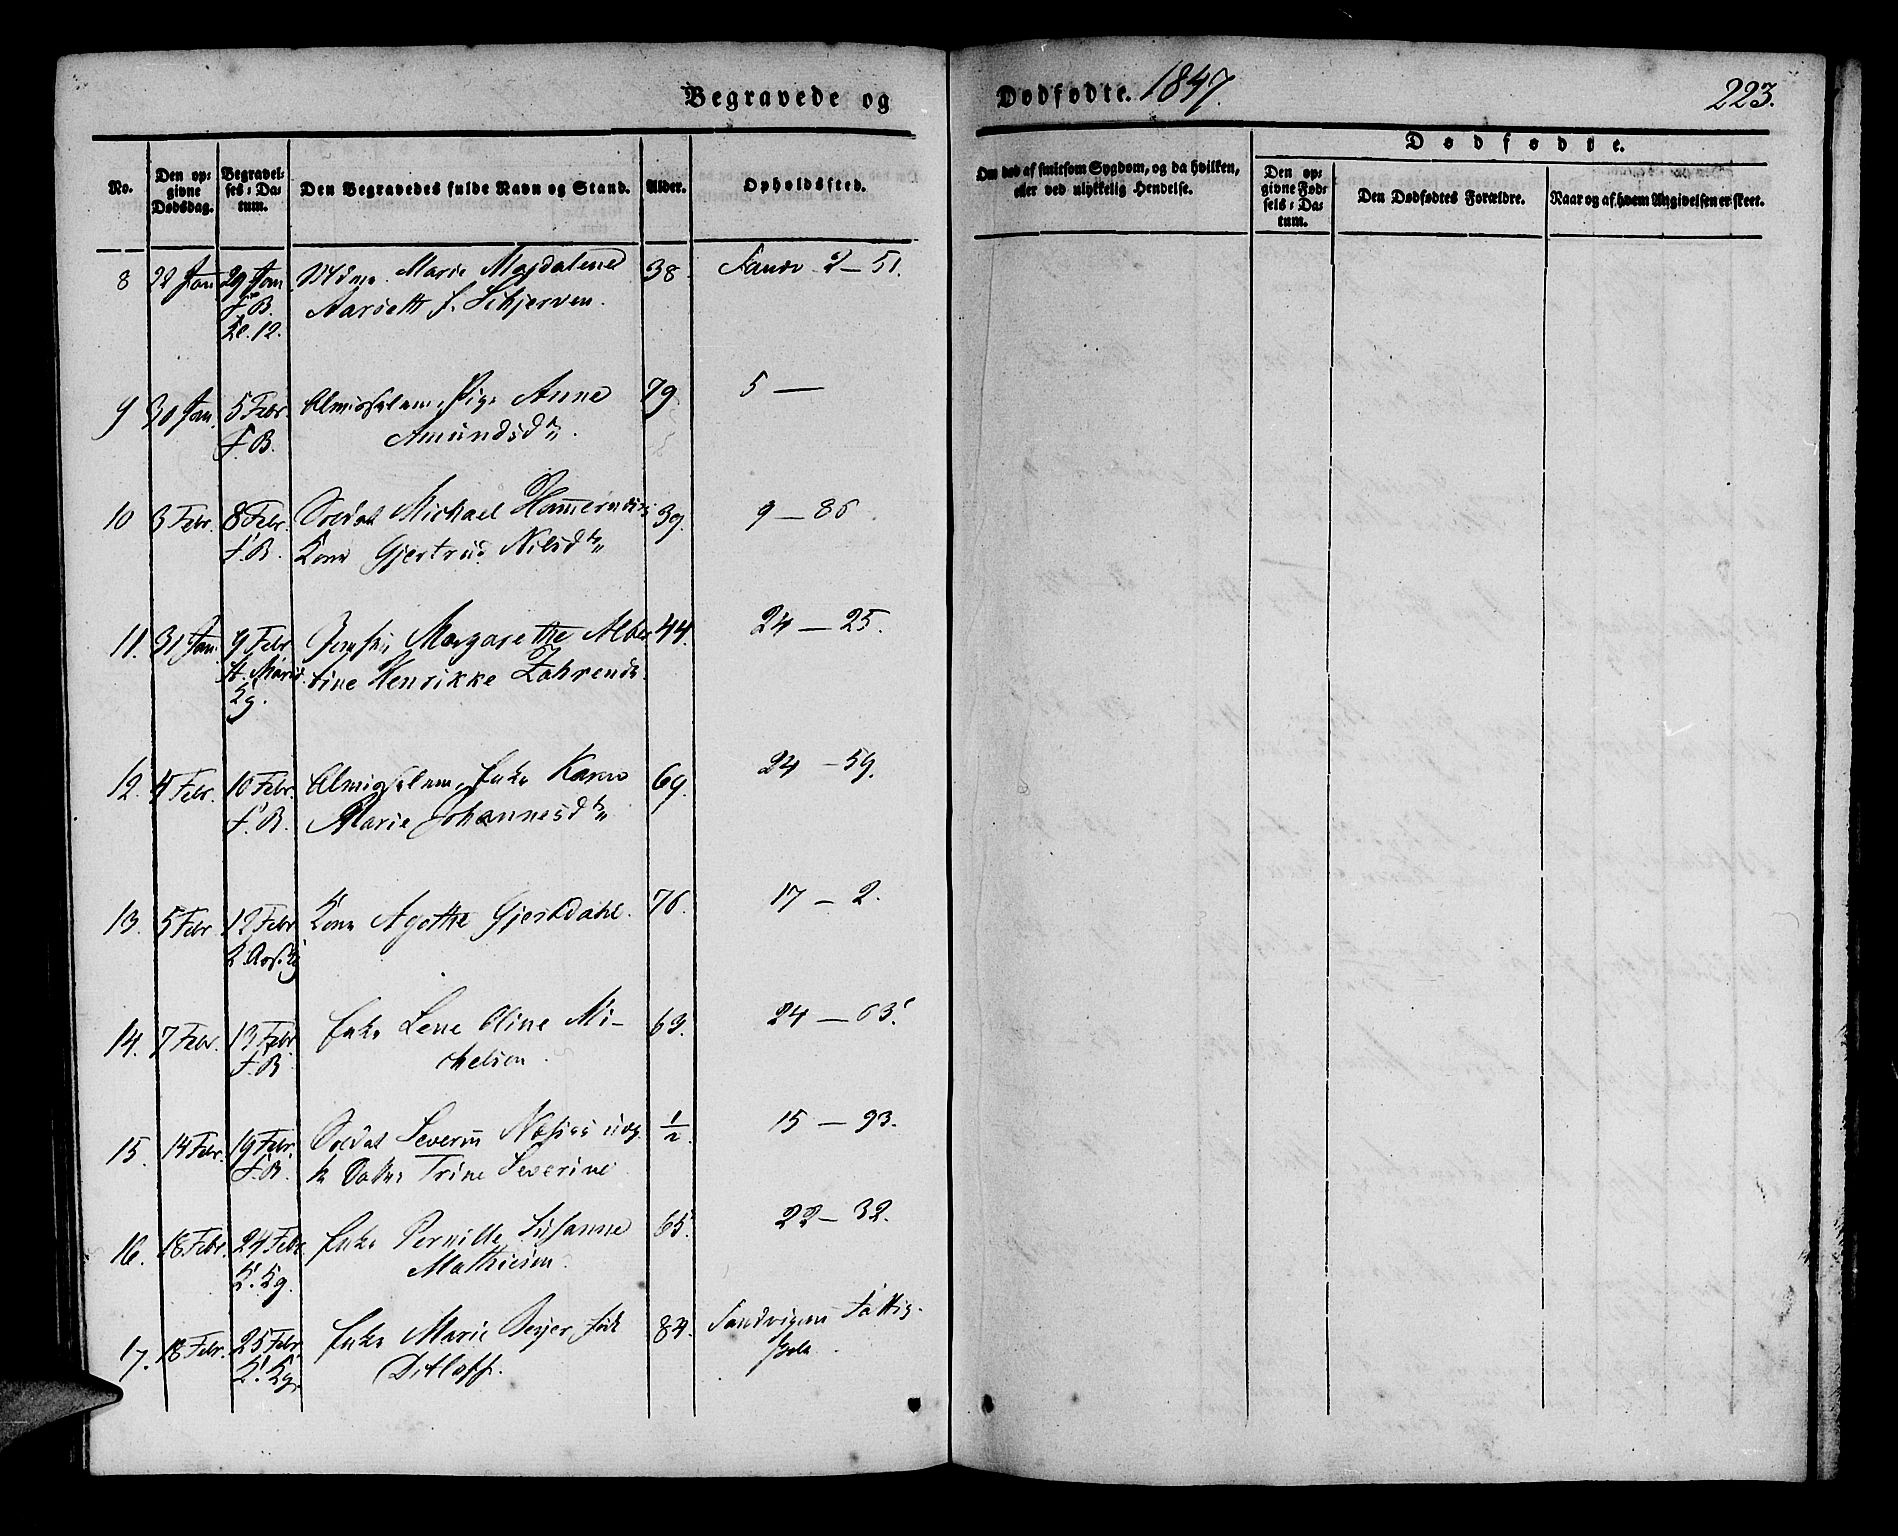 Begravede og
Dødfødte. 1847.
223.
No.
Den op-
givne
Dødsdag.
Begravel-
ses-Da-
tum.
Den Begravedes fulde Navn og Stand.
Alder.
Opholdssted.
Om død af smitsom Sygdom, og da hvilken,
eller ved ulykkelig Hendelse.
Dødfødte.
Den op-
givne Fød-
sels-Da-
tum.
Den Dødfødtes Forældre.
Naar og af hvem Angivelsen er skeet.
8 22 Jan 29 Jan Marie Magdalene 38. Sandv. 2 – 51.
F. B. f. Schjerven.
12.
9 30 Jan. 5 Febr Almisselem, Pige Anne 79 5 —
F. B. Amundsdtr
10 3 Febr. 8 Febr. Soldat Michael 39. 9 – 86
F. B. Kone Gjertrud Nilsdtr
11. 31 Jan. 9 Febr Jomfru Margarethe Alber 44. 24 – 25.
St. Marie tine Henrikke
Kg.
12. 4 Febr. 10 Febr. Almisselem, Enke Karen 69. 24 – 59.
F. B. Marie Johannesdtr
13. 5 Febr 12 Febr Kone Agathe Gjerkdahl. 76. 17 – 2.
14. 7 Febr. 13 Febr. Enke Lene Oline Mi- 63. 24 – 63.
F. B. chelsen.
15. 14 Febr. 19 Febr. Soldat Severin 1/2 15 – 93.
F. B. Datter Trine Severine
16. 18 Febr. 24 Febr Enke Pernille Susanne 65. 22 – 32.
K. Kg. Mathiesen.
17. 18 Febr. 25 Febr. Enke Marie Beyer, født 84. Sandvigen Fattig-
K. Kg. Ditloff.